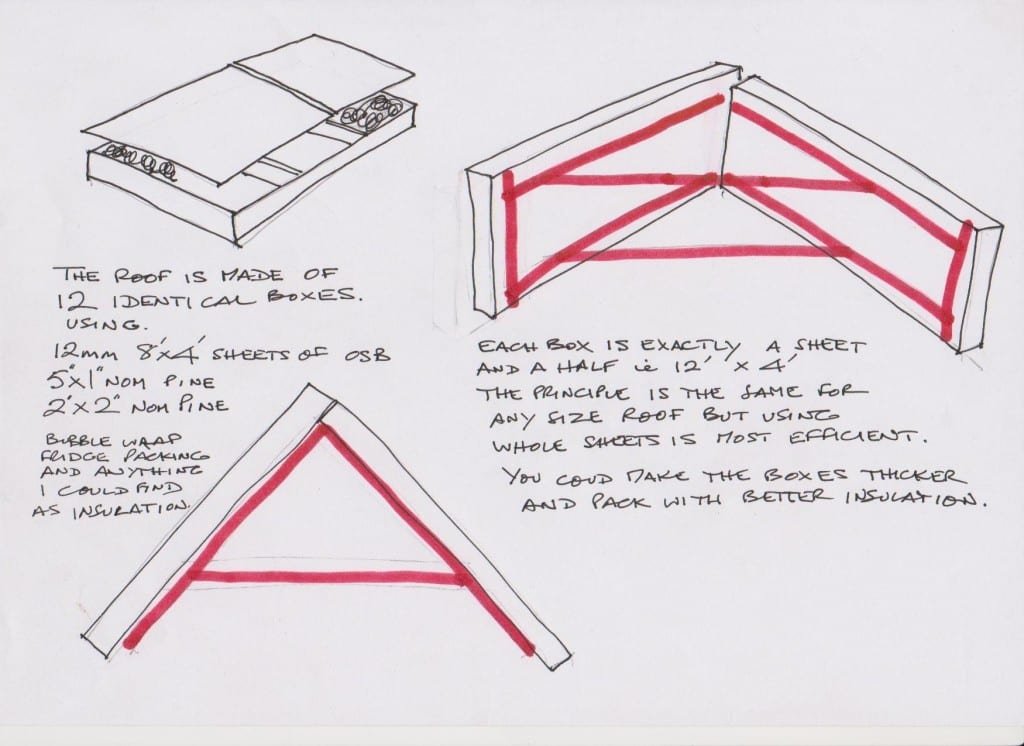 THE ROOF IS MADE OF
12 IDENTICAL BOXES.
USING.
12mm 8'x4' SHEETS OF OSB
5"x1" NOM PINE
2"x2" NOM PINE
BUBBLE WRAP
FRIDGE PACKING
AND ANYTHING
I COULD FIND
AS INSULATION.
EACH BOX IS EXACTLY A SHEET
AND A HALF ie 12' x 4'
THE PRINCIPLE IS THE SAME FOR
ANY SIZE ROOF BUT USING
WHOLE SHEETS IS MOST EFFICIENT.
YOU COUD MAKE THE BOXES THICKER
AND PACK WITH BETTER INSULATION.